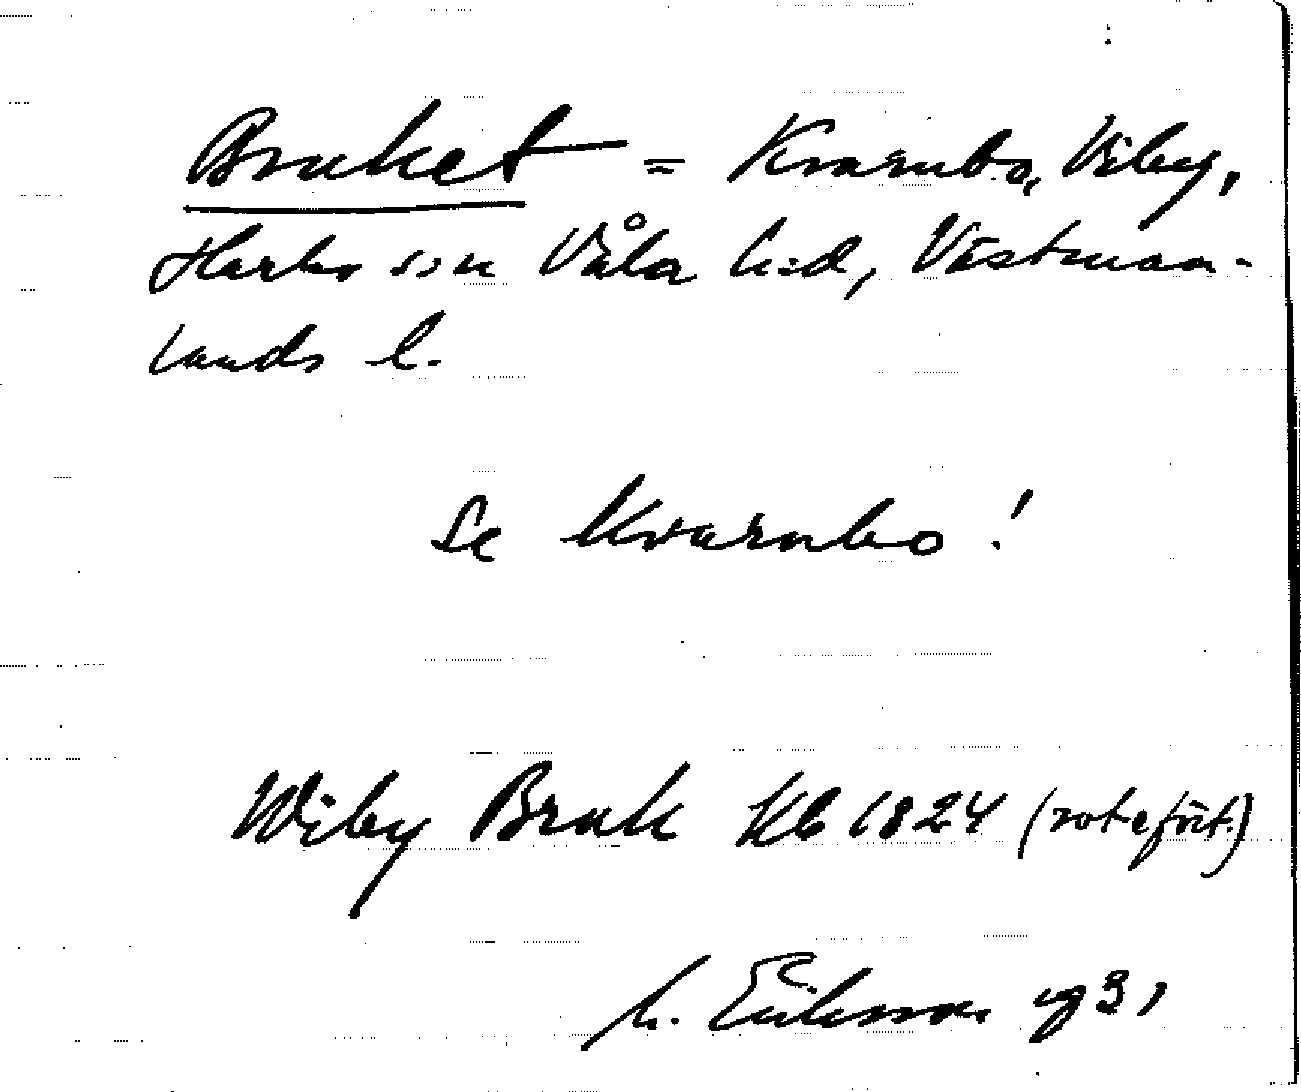 Bruket = Kvarnbo, Viby,
Harbo s:n Våla h:d, Västman-
lands l.
Se Kvarnbo!
Wiby Bruk Kb 1824 (rotefört.)
M. Eriksson 1931